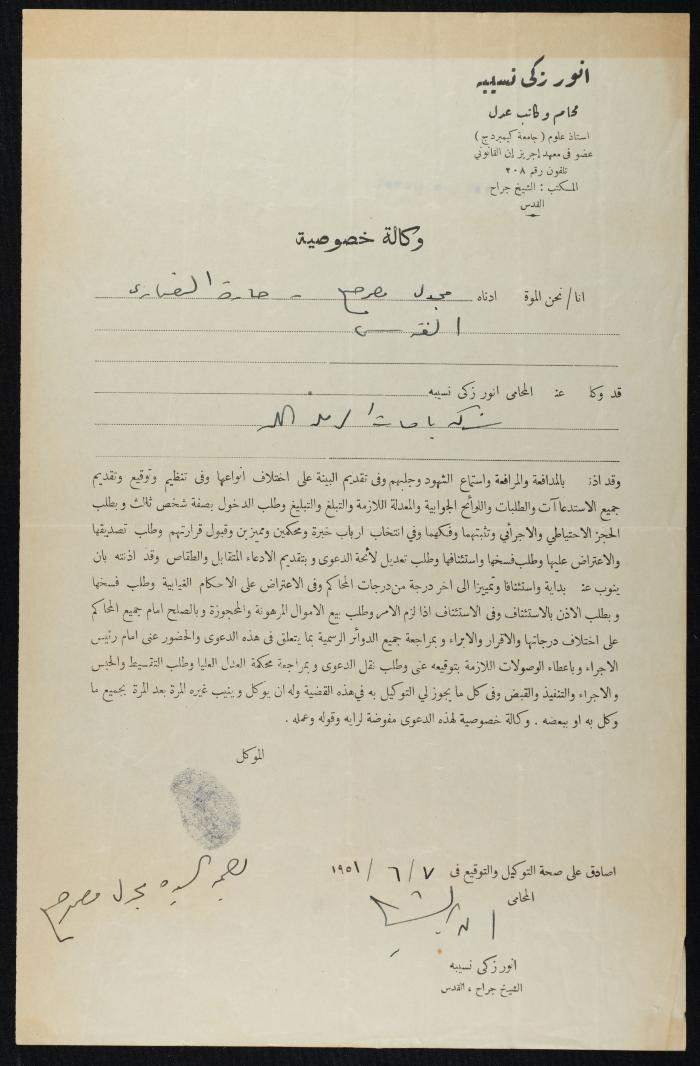 انور زكي نسيبه
محام وكاتب عدل
استاذ علوم ( جامعة كيمبردج )
عضو فى معهد اجريز إن القانوني
تلفون رقم ٢٠٨
المسكتب : الشيخ جراح
القدس
وكالة خصوصية
انا/نحن الموة ادناه مجدل مصرصع - حارة النصارى
القدس
قد وكا عنـ المحامى انور زكى نسيبه
شركة باصات رام الله
وقد اذنـ بالمدافعة والمرافعة واستماع الشهود وجلبهم وفى تقديم البينة على اختلاف انواعها وفى تنظيم وتوقيع وتقديم
جميع الاستدعاآت والطلبات واللوائح الجوابية والمعدلة اللازمة والتبلغ والتبليغ وطلب الدخول بصفة شخص ثالث وبطلب
الحجز الاحتياطي والاجرائي وتثبيتهما وفكهما وفي انتخاب ارباب خبرة ومحكمين ومميزين وقبول قرارتهم وطلب تصديقها
والاعتراض عليها وطلب فسخها واستئنافها وطلب تعديل لائحة الدعوى وبتقديم الادعاء المتقابل والطقاص وقد اذنته بان
ينوب عنـ بداية واستئنافا وتمييزا الى اخر درجة من درجات المحاكم وفى الاعتراض على الاحكام الغيابية وطلب فسخها
وبطلب الاذن بالاستئناف وفى الاستئناف اذا لزم الامر وطلب بيع الاموال المرهونة والمحجوزة وبالصلح امام جميع المحاكم
على اختلاف درجاتها والاقرار والابراء وبمراجعة جميع الدوائر الرسمية بما يتعلق فى هذه الدعوى والحضور عنى امام رئيس
الاجراء وباعطاء الوصولات اللازمة بتوقيعه عنى وطلب نقل الدعوى وبمراجعة محكمة العدل العليا وطلب التقسيط والحبس
والاجراء والتنفيذ والقبض وفى كل ما يجوز لي التوكيل به في هذه القضية وله ان يوكل وينيب غيره المرة بعد المرة بجميع ما
وكل به او ببعضه . وكالة خصوصية لهذه الدعوى مفوضة لرايه وقوله وعمله .
الموكل
بصمة السيدة مجدل مصرصع
اصادق على صحة التوكيل والتوقيع فى ٧ / ٦ / ١٩٥١
المحامى
انور زكى نسيبه
الشيخ جراح ، القدس